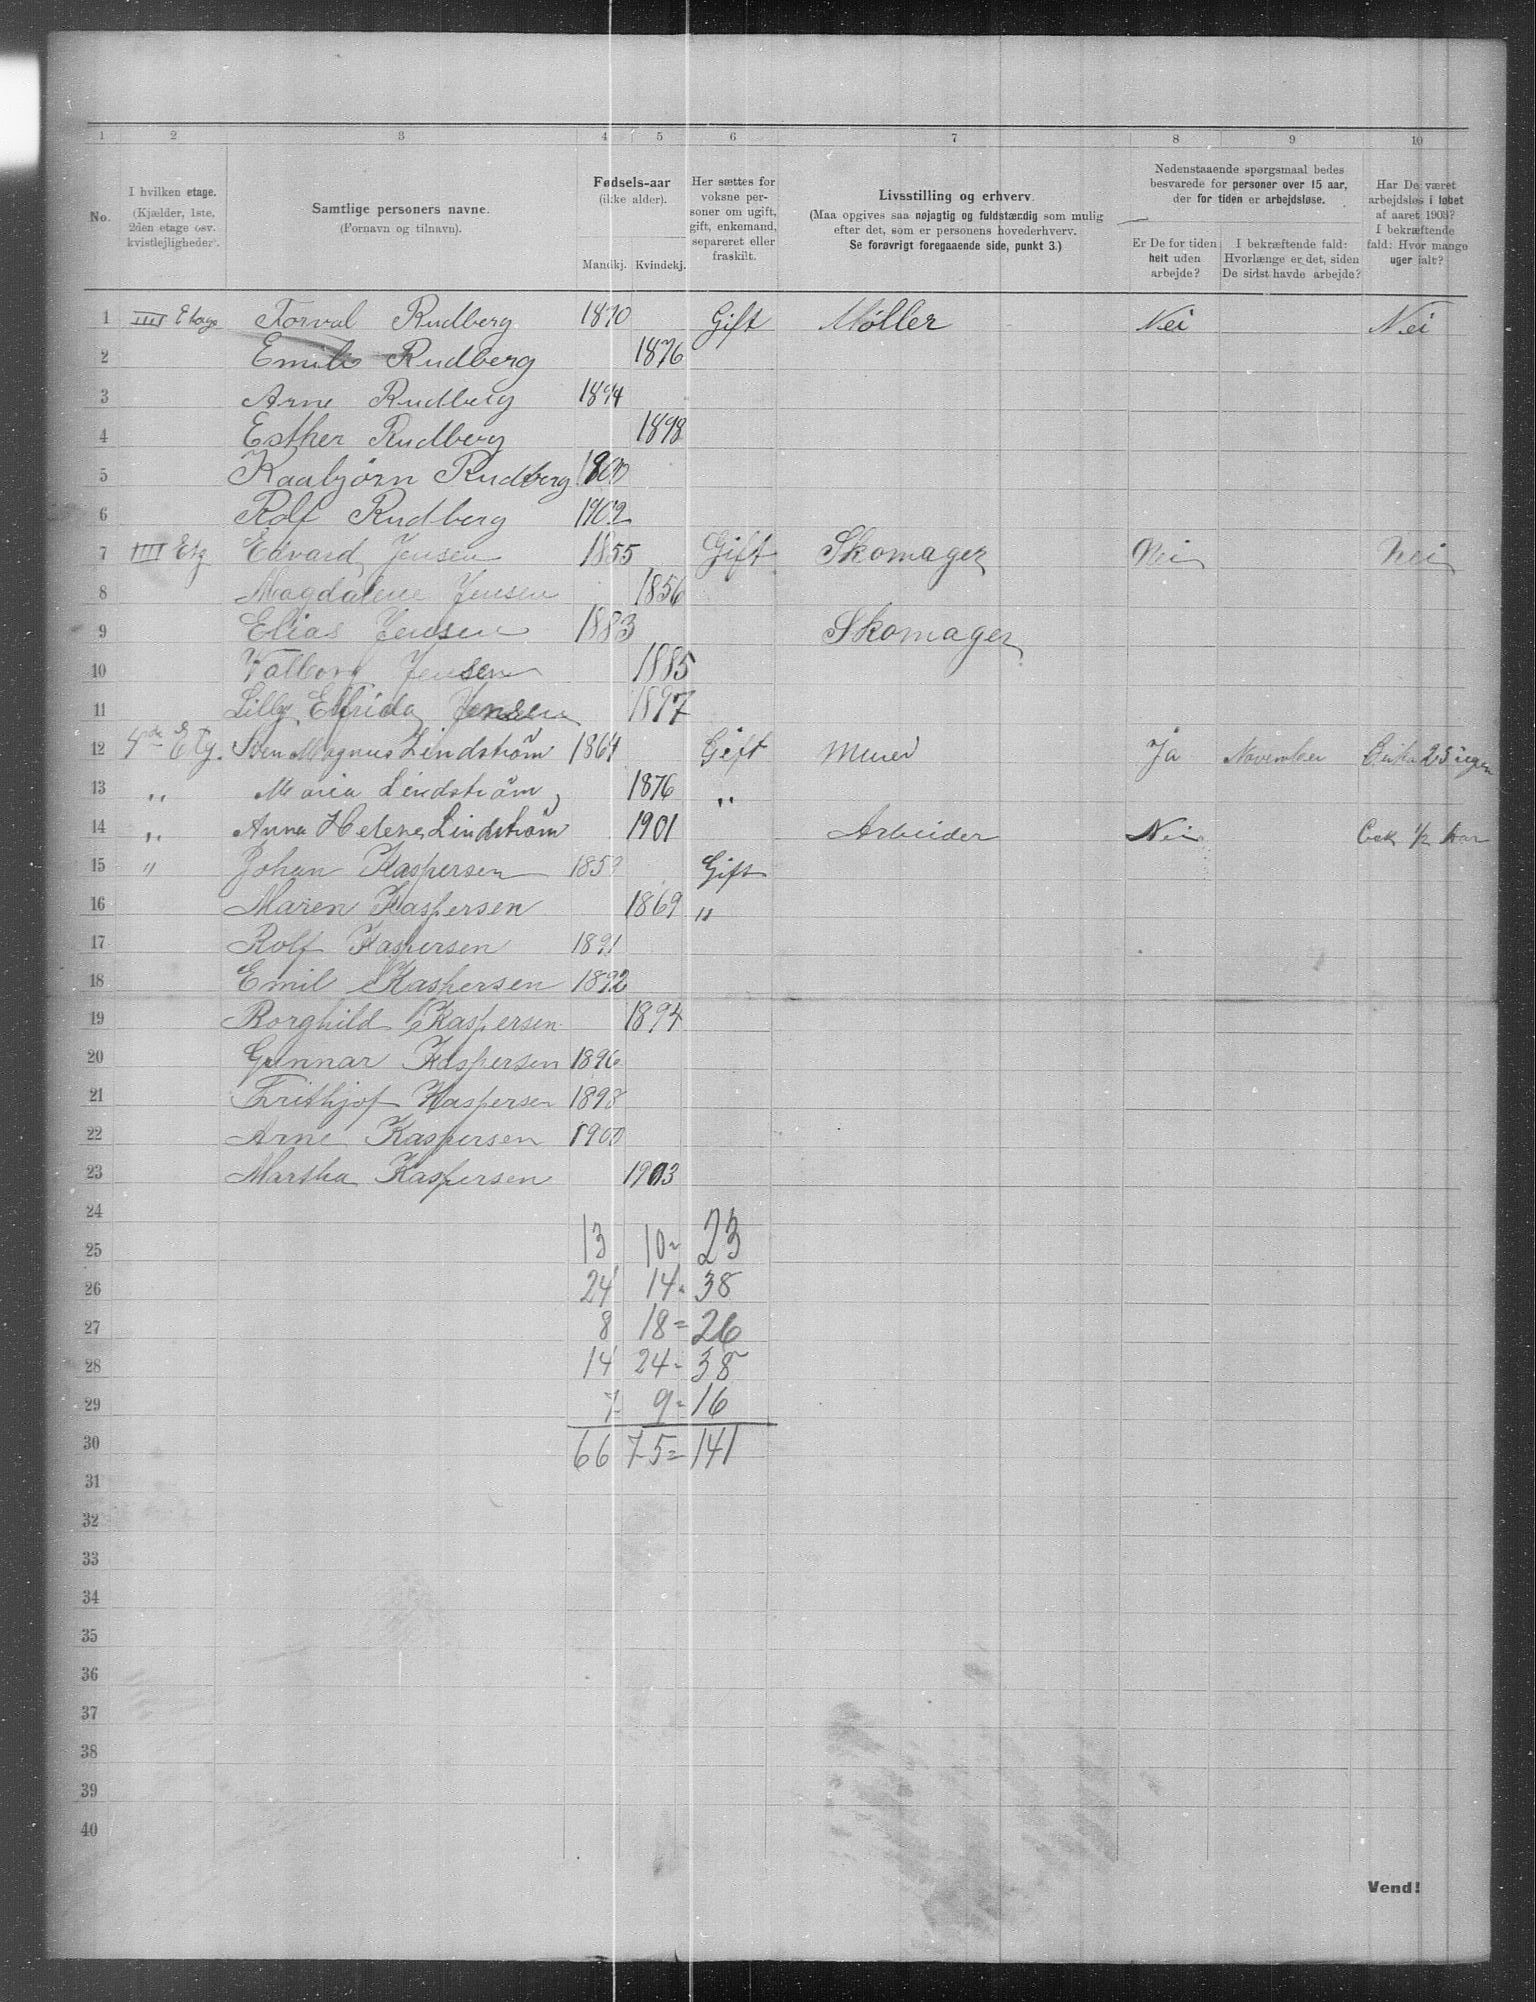 1 2 3 4 5 6 7 8 9 10
No.
I hvilken etage.
(Kjælder, 1ste,
2den etage osv.
kvistlejligheder).
Samtlige personers navne.
(Fornavn og tilnavn).
Fødsels-aar
(ikke alder).
Mandkj. Kvindekj.
Her sættes for
voksne per-
soner om ugift,
gift, enkemand,
separeret eller
fraskilt.
Livsstilling og erhverv.
(Maa opgives saa nøjagtig og fuldstændig som mulig
efter det, som er personens hovederhverv.
Se forøvrigt foregaaende side, punkt 3.)
Nedenstaaende spørgsmaal bedes
besvarede for personer over 15 aar,
der for tiden er arbejdsløse.
Er De for tiden
helt uden
arbejde?
I bekræftende fald:
Hvorlænge er det, siden
De sidst havde arbejde?
Har De været
arbejdsløs i løbet
af aaret 1903?
I bekræftende
fald: Hvor mange
uger ialt?
1 IIII Etage Torval Rudberg 1870 Gift Møller Nei Nei
2 Emile Rudberg 1876
3 Arne Rudberg 1894
4 Esther Rudberg 1898
5 Kaabjørn Rudberg 1900
6 Rolf Rudberg 1902
7 IIII Etg Edvard Jensen 1855 Gift Skomager Nei Nei
8 Magdalene Jensen 1856
9 Elias Jensen 1883 Skomager
10 Valborg Jensen 1885
11 Lilly Elfrida Jensen 1897
12 4de Etg. Sven Magnus Lindström 1864 Gift Murer Ja November Cirka 25 ugen
13 " Maria Lindström, 1876 "
14 " Anna Helene Lindström 1901 Arbeider Nei 1/2 Aar
15 " Johan Kaspersen Gift
16 Maren Kaspersen 1869 "
17 Rolf Kaspersen 1891
18 Emil Kaspersen 1892
19 Borghild Kaspersen 1894
20 Gunnar Kaspersen 1896
21 Frithjof Kaspersen 1898
22 Arne Kaspersen 1900
23 Martha Kaspersen 1903
24
25 13 10 = 23
26 24 14 = 38
27 8 18 = 26
28 14 24 = 38
29 7 9 = 16
30 66 75 = 141
31
32
33
34
35
36
37
38
39
40
Vend!